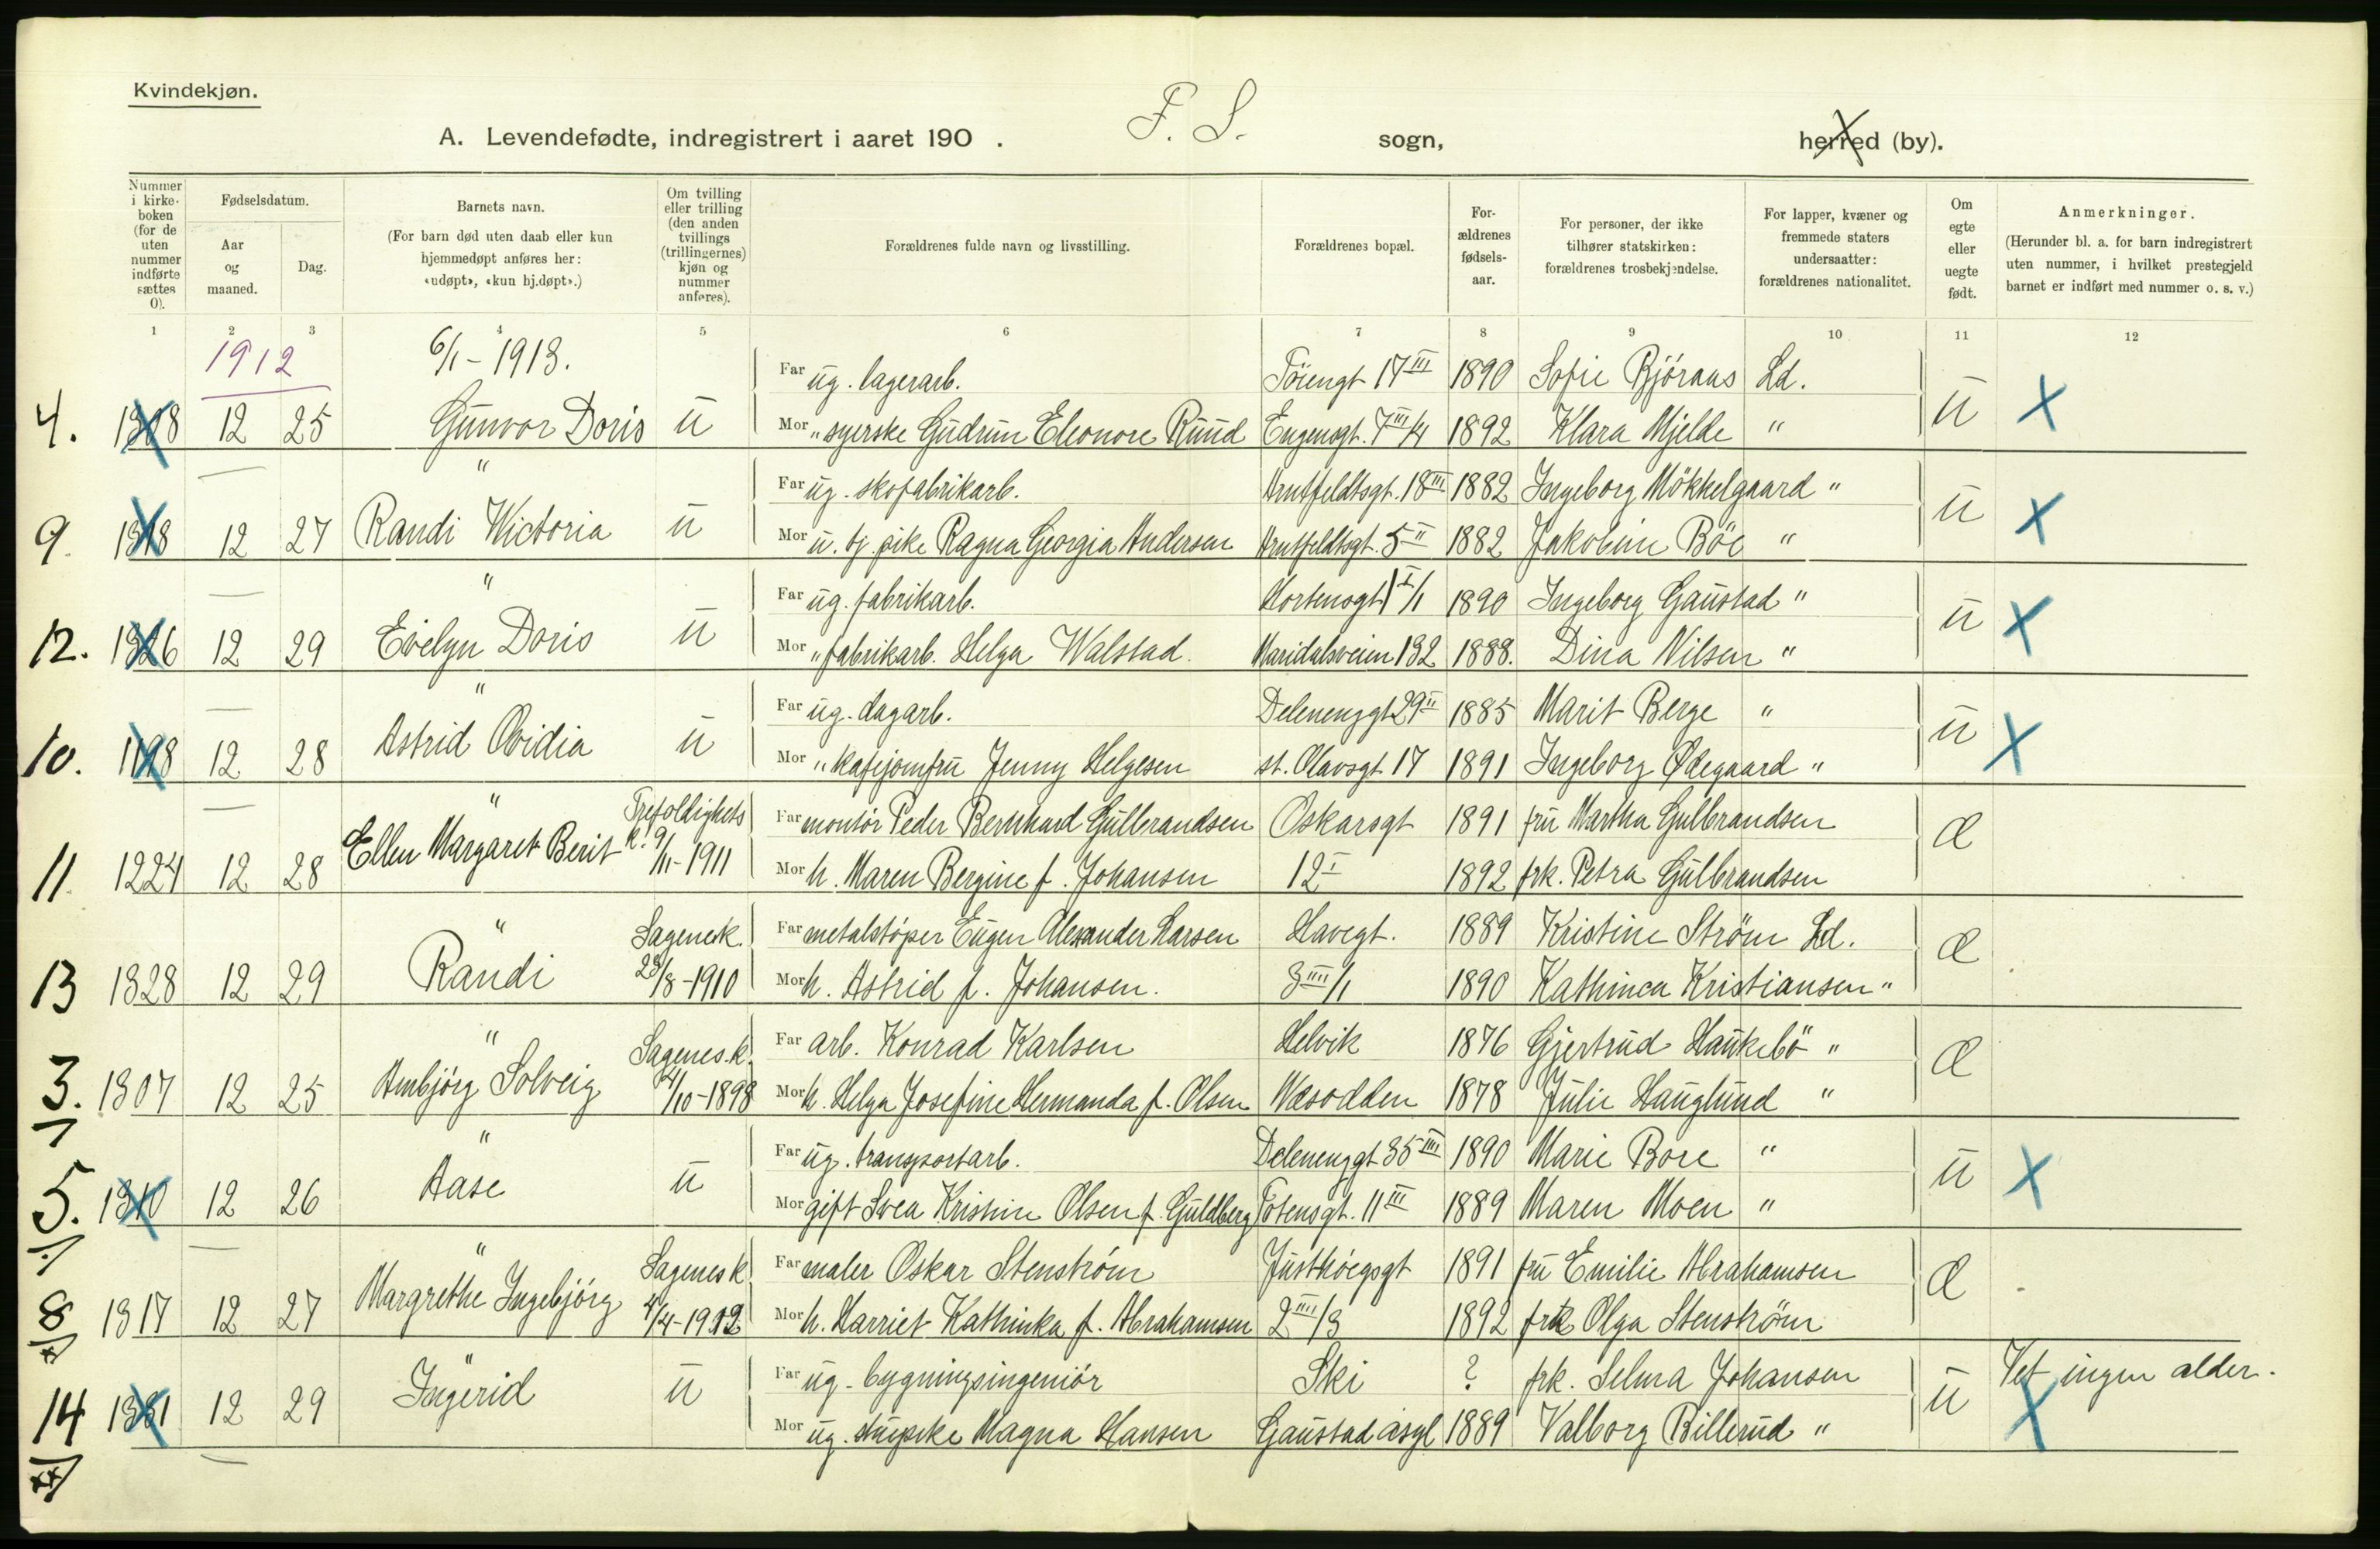 Kvindekjøn.
F. S.
A. Levendefødte, indregistrert i aaret 190 . sogn, herred (by).
Nummer i kirkeboken (for de uten nummer indførte sættes 0).
Fødselsdatum.
Aar og maaned.
Dag.
Barnets navn.
(For barn død uten daab eller kun hjemmedøpt anføres her: «udøpt», «kun hj.døpt».)
Om tvilling eller trilling (den anden tvillings (trillingernes) kjøn og nummer anføres).
Forældrenes fulde navn og livsstilling.
Forældrenes bopæl.
Forældrenes fødselsaar.
For personer, der ikke tilhører statskirken: forældrenes trosbekjendelse.
For lapper, kvæner og fremmede staters undersaatter: forældrenes nationalitet.
Om egte eller uegte født.
Anmerkninger.
(Herunder bl. a. for barn indregistrert uten nummer, i hvilket prestegjeld barnet er indført med nummer o. s. v.)
1 2 3 4 5 6 7 8 9 10 11 12
1912 6/1 - 1913.
Far ug. lagerarb. Töiengt 17 III 1890 Sofie Björaas Ld.
4. 1308 12 25 Gunvor Doris u Mor " syerske Gudrun Eleonore Ruud Eugensgt. 7 III/4 1892 Klara Mjelde " u X
" Far ug. skofabrikarb. Arutfeldtsgt. 18 III 1882 Ingeborg Mökkelgaard "
9. 1318 12 27 Randi Wictoria u Mor u. tj pike Ragna Georgia Andersen Arutfeldtsgt. 5 II 1882 Jakobine Böe " u X
" Far ug. fabrikarb. Hortensgt 1 I/1 1890 Ingeborg Gaustad "
12. 1326 12 29 Evelyn Doris u Mor " fabrikarb. Helga Walstad. Maridalsveien 132 1888. Dina Nilsen " u X
" Far ug. dagarb. Delenenggt 29 II 1885 Marit Berge "
10. 1198 12 28 Astrid Ovidia u Mor " kafejomfru Jenny Helgesen st. Olavsgt 17 1891 Ingeborg Ødegaard " u X
" Trefoldighets k. Far montör Peder Bernhard Gulbrandsen Oskarsgt 1891 fru Martha Gulbrandsen
11. 1224 12 28 Ellen Margaret Berit 9/11-1911 Mor h. Maren Bergine f. Johansen 12 I 1892 frk. Petra Gulbrandsen Æ
" Sagenesk. Far metalstöper Eugen Alexander Larsen Havegt. 1889 Kristine Ström Ld.
13 1328 12 29 Randi 28/8-1910 Mor h. Astrid f. Johansen. 3 IIII/1 1890 Kathinca Kristiansen " Æ
" Sagenes.k. Far arb. Konrad Karlsen Helvik 1876 Gjertrud Haukebö "
3. 1307 12 25 Ambjörg Solveig /10-1898 Mor h. Helga Josefine Hermanda f. Olsen Næsodden 1878 Julie Hauglund " Æ
" Far ug. transportarb. Delenenggt 35 IIII 1890 Marie Bore "
5. 1310 12 26 Aase u Mor gift Svea Kristine Olsen f. Guldberg Totensgt. 11 III 1889 Maren Moen " u X
" Sagenes k Far maler Oskar Stenström Justhöegsgt 1891 fru Emilie Abrahamsen
8 1317 12 27 Margrethe Ingebjörg 4/4-1912 Mor h. Harriet Kathinka f. Abrahamsen 2 IIII/3 1892 frk Olga Stenström Æ
" Far ug. bygningsingeniör Ski ? frk. Selma Johansen Vet ingen alder.
14 1331 12 29 Ingerid u Mor ug. stuepike Magna Hansen Gaustad asyl 1889 Valborg Billerud " u X